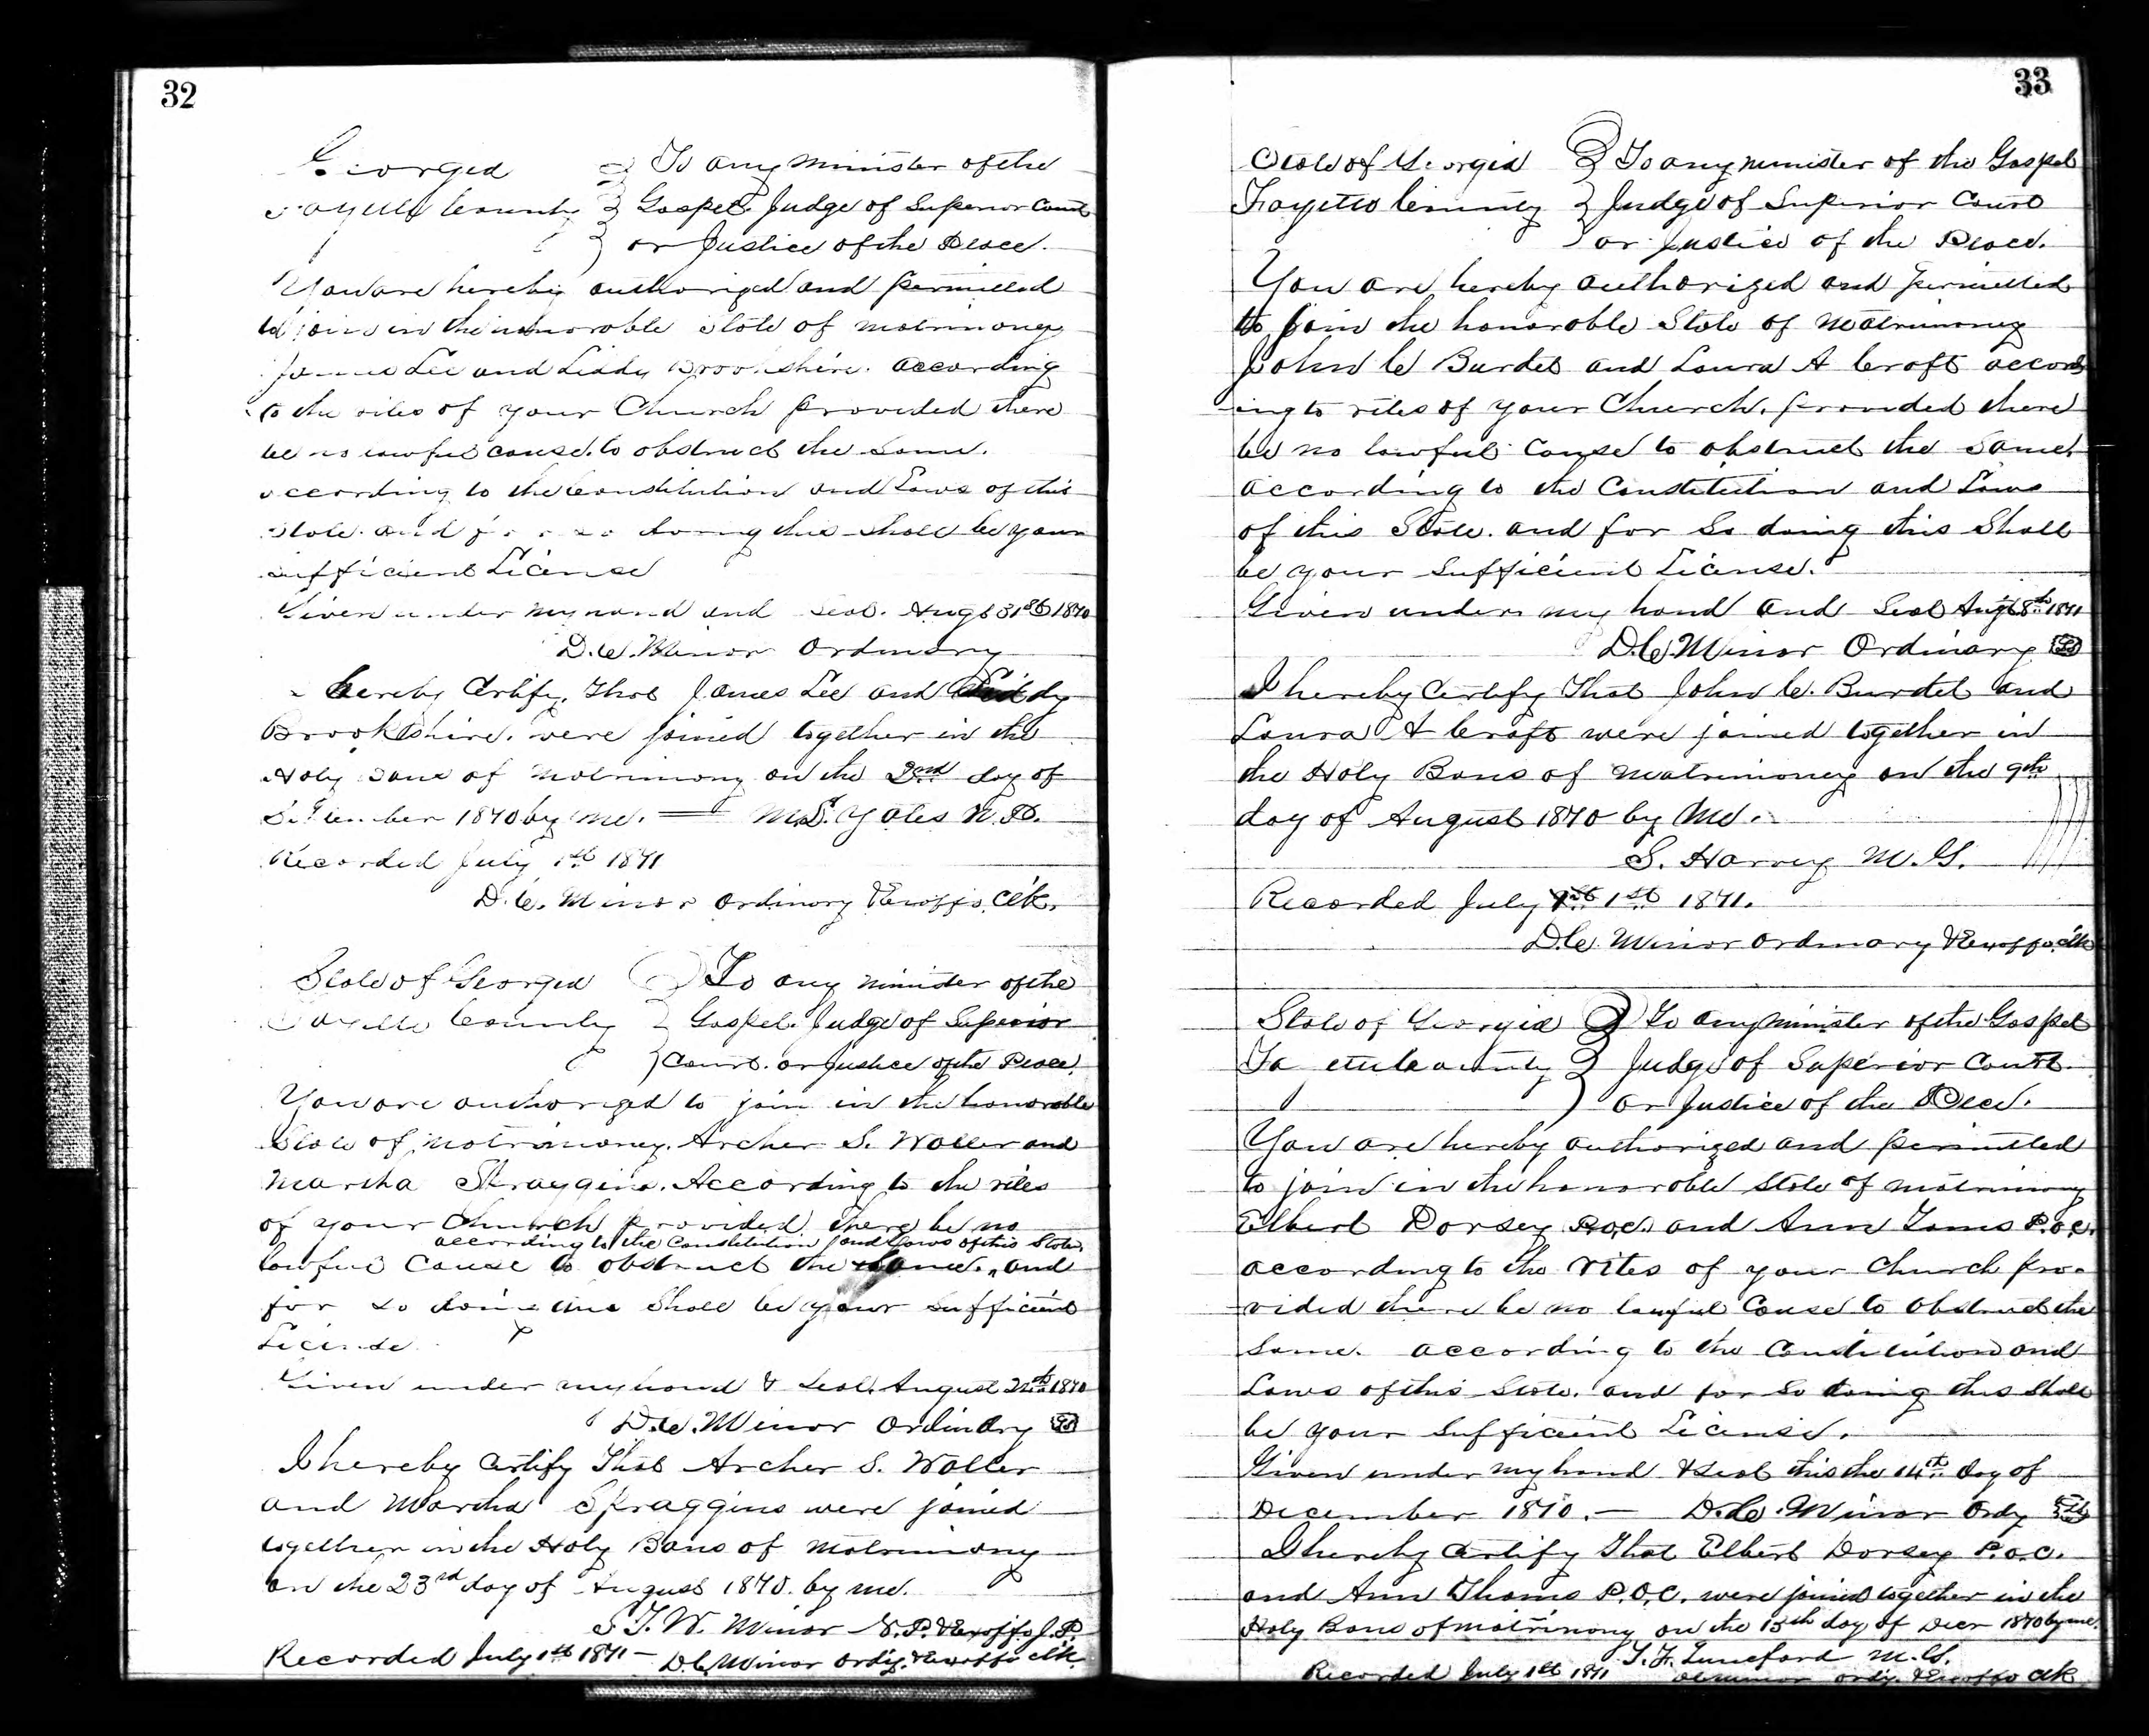 32
Georgia } To any minister of the
Fayette County } Gospel. Judge of Superior Court
or Justice of the Peace.
You are hereby authorized and permitted
to join in the honorable State of matrimony
James Lee and Liddy Brookshire. according
to the rites of your Church provided there
be no lawful cause. to obstruct the same.
according to the Constitution and Laws of this
State. and for so doing this shall be your
sufficient License
Given under my hand and Seal. Augt 31st 1870
D.C. Minor Ordinary
hereby Certify. That James Lee and Liddy
Brookshire. were joined together in the
Holy Bans of Matrimony on the 2nd day of
September 1870 by me. — M.S. Yates N.P.
Recorded July 1st 1871
D.C. Minor Ordinary & Exoffo. Clk.
State of Georgia } To any minister of the
Fayette County } Gospel. Judge of Superior
Court. or Justice of the Peace.
You are authorized to join in the honorable
State of matrimoney. Archer S. Waller and
Martha Spraggins. According to the rites
of your Church provided there be no
according to the Constitution and Laws of this State.
lawful cause to obstruct the same. and
for so doing this Shall be your sufficient
License
Given under my hand & Seal. August 1870
D.C. Minor Ordinary LS
I hereby Certify That Archer S. Waller
and Martha Spraggins were joined
together in the Holy Bans of Matrimony
on the 23rd day of August 1870. by me.
S.T.W. Minor N.P. & Exoffo J.P.
Recorded July 1st 1871 — D.C. Minor Ordy. & Exoffo Clk.
33
State of Georgia } To any minister of the Gospel
Fayette County } Judge of Superior Court
or Justice of the Peace.
You are hereby authorized and permitted
to join the honorable State of Matrimoney
John C Burdet and Laura A Croft accord
ing to rites of your Church. provided there
be no lawful cause to obstruct the same.
according to the Constitution and Laws
of this State. and for so doing this Shall
be your sufficient License.
Given under my hand and Seal Augt 8th 1871
D.C. Minor Ordinary LS
I hereby Certify That John C. Burdet and
Laura A Croft were joined together in
the Holy Bans of Matrimoney on the 9th
day of August 1870 by Me.
S. Harvey M.G.
Recorded July 1st 1871.
D.C. Minor Ordinary & Exoffo. Clk
State of Georgia } To any Minister of the Gospel
Fayette County } Judge of Superior Court.
or Justice of the Peace.
You are hereby authorized and permitted
to join in the honorable State of matrimony
Elbert Dorsey P.O.C. and Ann Toms P.O.C.
according to the rites of your Church pro-
vided there be no lawful Cause to obstruct the
Same. according to the Constitution and
Laws of this State. and for so doing this shall
be your sufficient License.
Given under my hand & Seal this the 14th day of
December 1870. — D.C. Minor Ordy LS
I hereby Certify That Elbert Dorsey P.O.C.
and Ann Thoms P.O.C. were joined together in the
Holy Bans of matrimony on the 15th day of Decr 1870 by me.
T.F. Lunsford M.G.
Recorded July 1st 1871 DC Minor Ordy. & Exoffo Clk